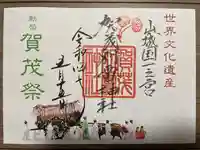 世界文化遺産
山城国一之宮
賀茂御祖神社
令和四年
五月十五日
勅祭
賀茂祭